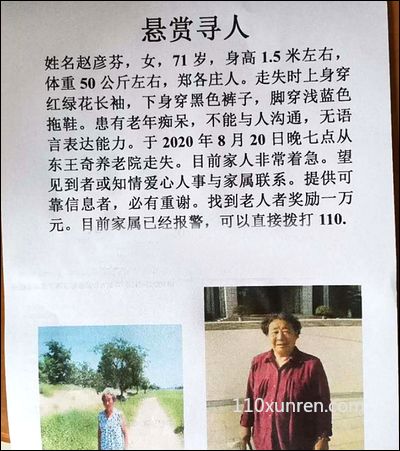 悬赏寻人
姓名赵彦芬，女，71 岁，身高 1.5 米左右，
体重 50 公斤左右，郑各庄人。走失时上身穿
红绿花长袖，下身穿黑色裤子，脚穿浅蓝色
拖鞋。患有老年痴呆，不能与人沟通，无语
言表达能力。于 2020 年 8 月 20 日晚七点从
东王奇养老院走失。目前家人非常着急。望
见到者或知情爱心人事与家属联系。提供可
靠信息者，必有重谢。找到老人者奖励一万
元。目前家属已经报警，可以直接拨打 110.
110xunren.com